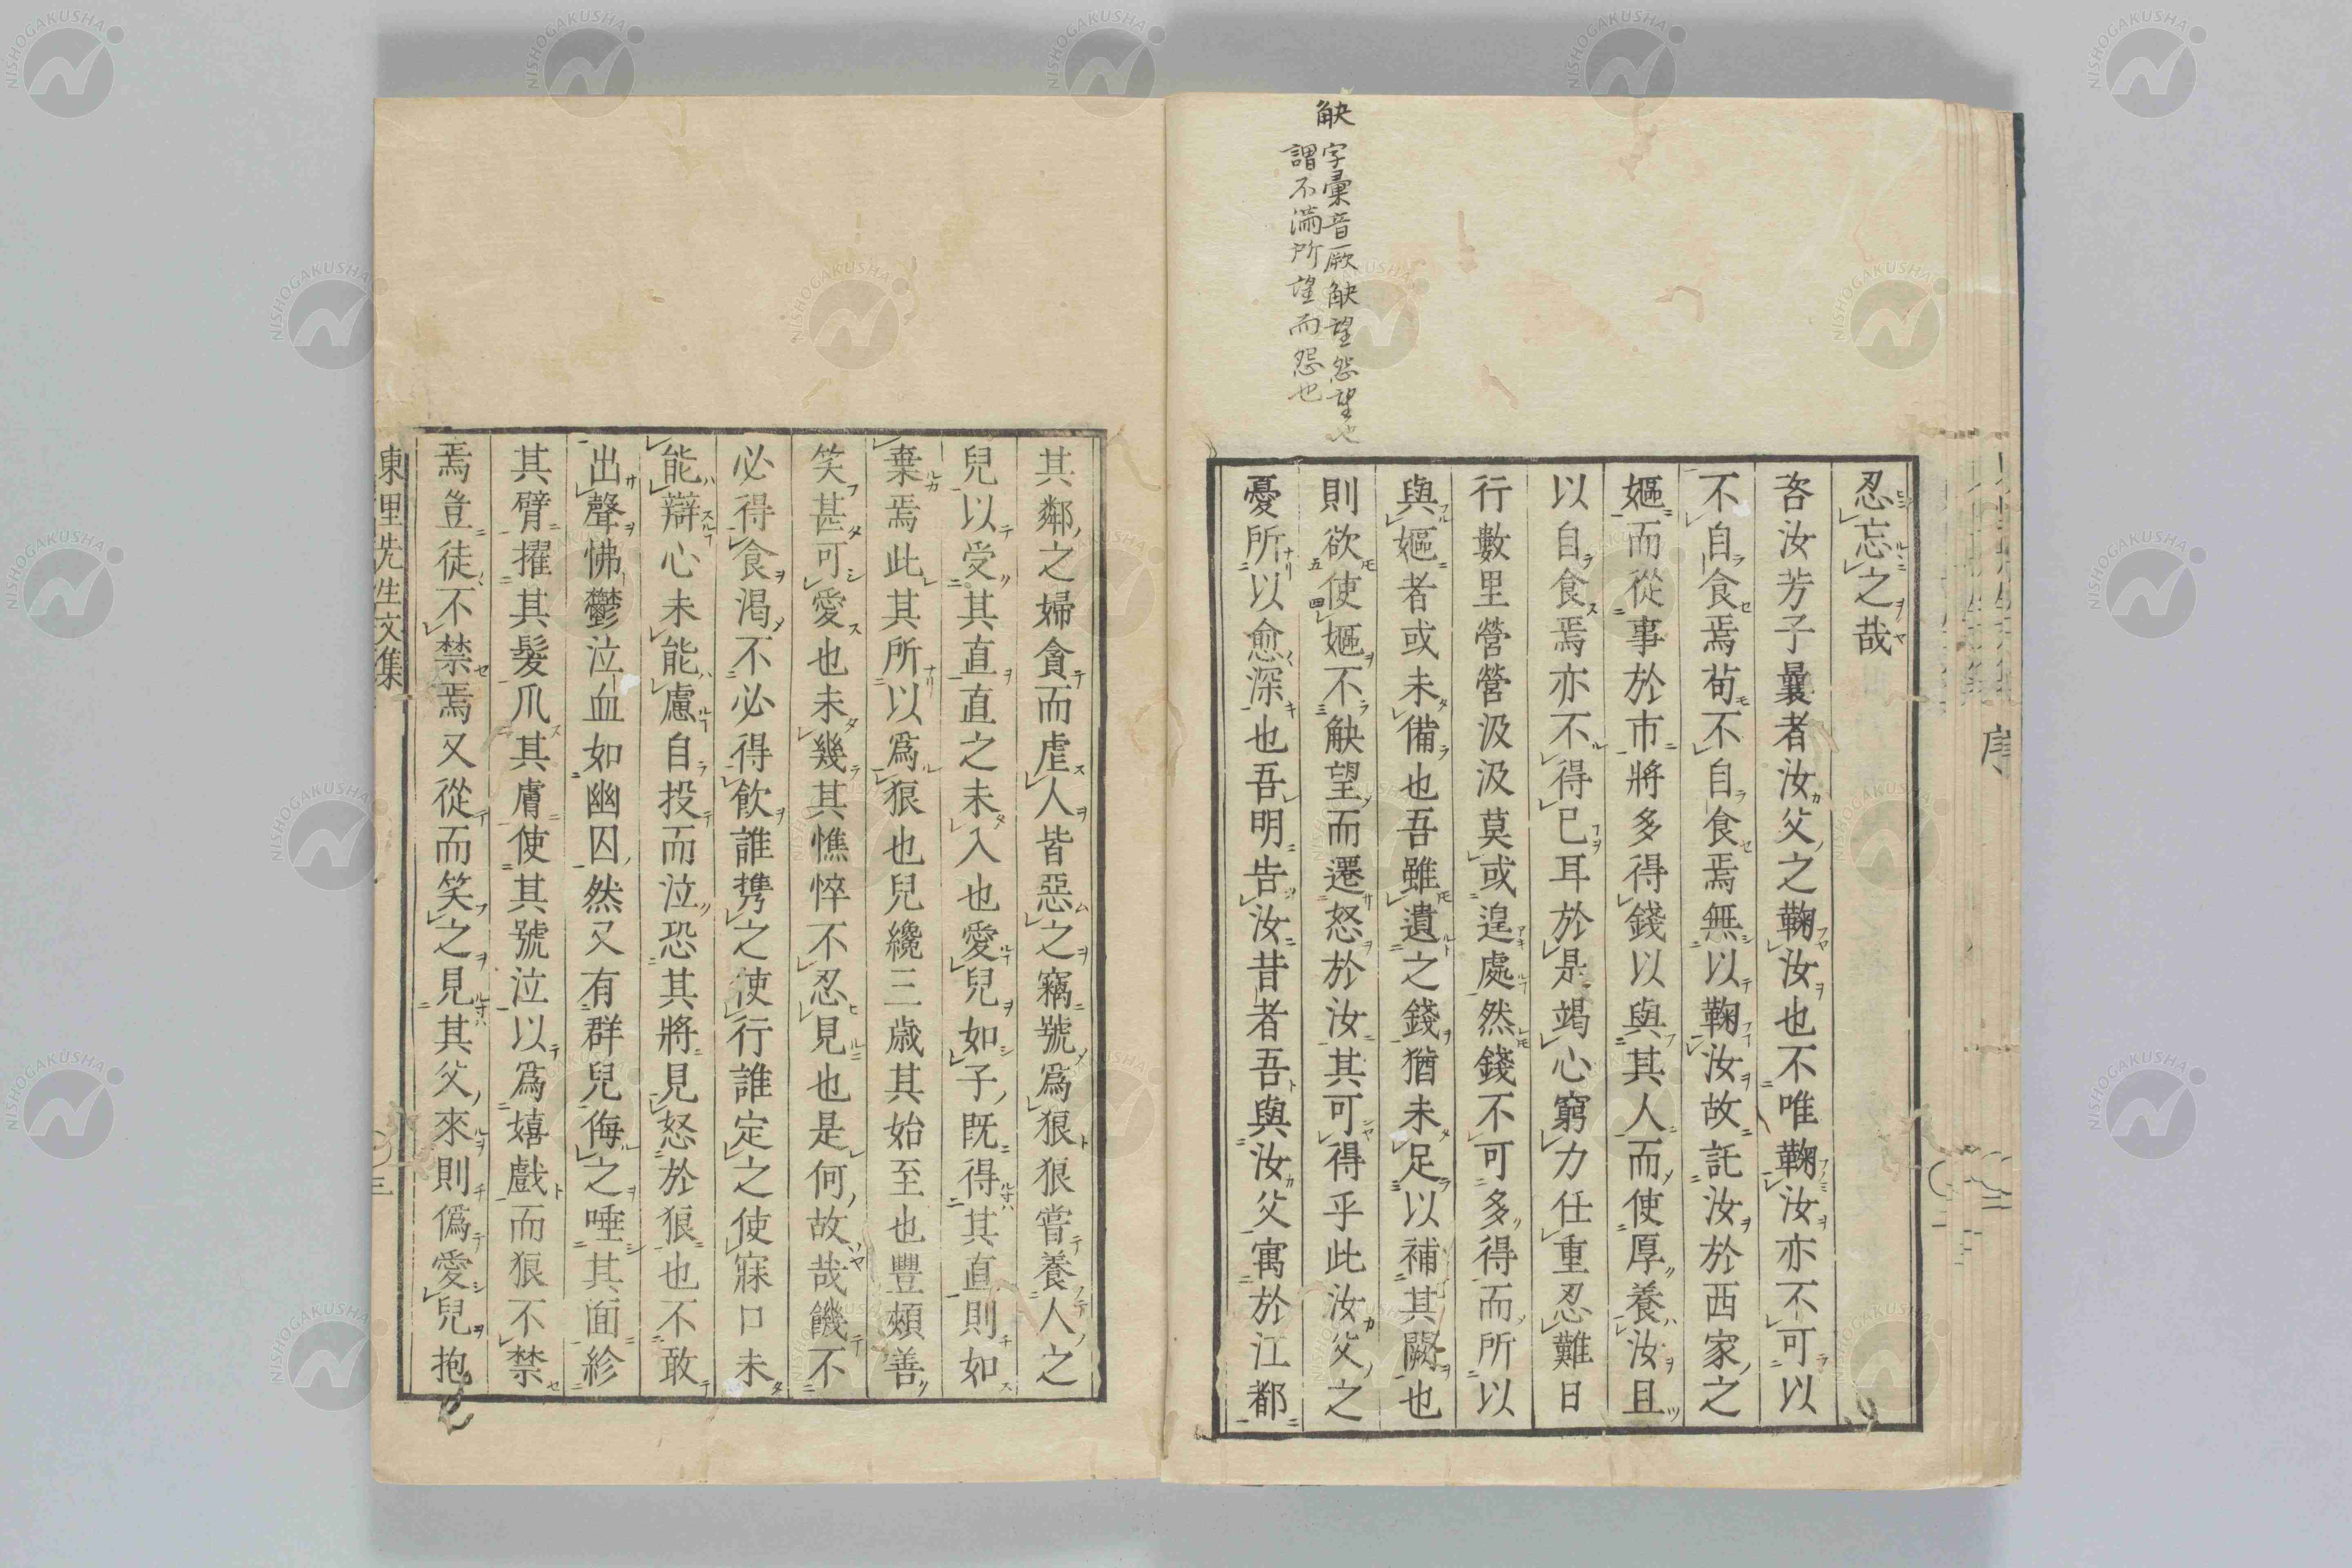 觖
字彙音厥觖望怨望也
謂不滿所望而怨也
忍忘之哉
吝汝芳子曩者汝父之鞠汝也不唯鞠汝亦不可以
不自食焉苟不自食焉無以鞠汝故託汝於西家之
嫗而從事於市將多得錢以與其人而使厚養汝且
以自食焉亦不得已耳於是竭心窮力任重忍難日
行數里營營汲汲莫或遑處然錢不可多得而所以
與嫗者或未備也吾雖遺之錢猶未足以補其闕也
則欲使嫗不觖望而遷怒於汝其可得乎此汝父之
憂所以愈深也吾明告汝昔者吾與汝父寓於江都
其鄰之婦貪而虐人皆惡之竊號爲狼狼嘗養人之
兒以受其直直之未入也愛兒如子既得其直則如
棄焉此其所以爲狼也兒纔三歲其始至也豐頰善
笑甚可愛也未幾其憔悴不忍見也是何故哉饑不
必得食渴不必得飮誰携之使行誰定之使寐口未
能辯心未能慮自投而泣恐其將見怒於狼也不敢
出聲怫鬱泣血如幽囚然又有群兒侮之唾其面紾
其臂擢其髮爪其膚使其號泣以爲嬉戲而狼不禁
焉豈徒不禁焉又從而笑之見其父來則僞愛兒抱
東里先生文集
三
序